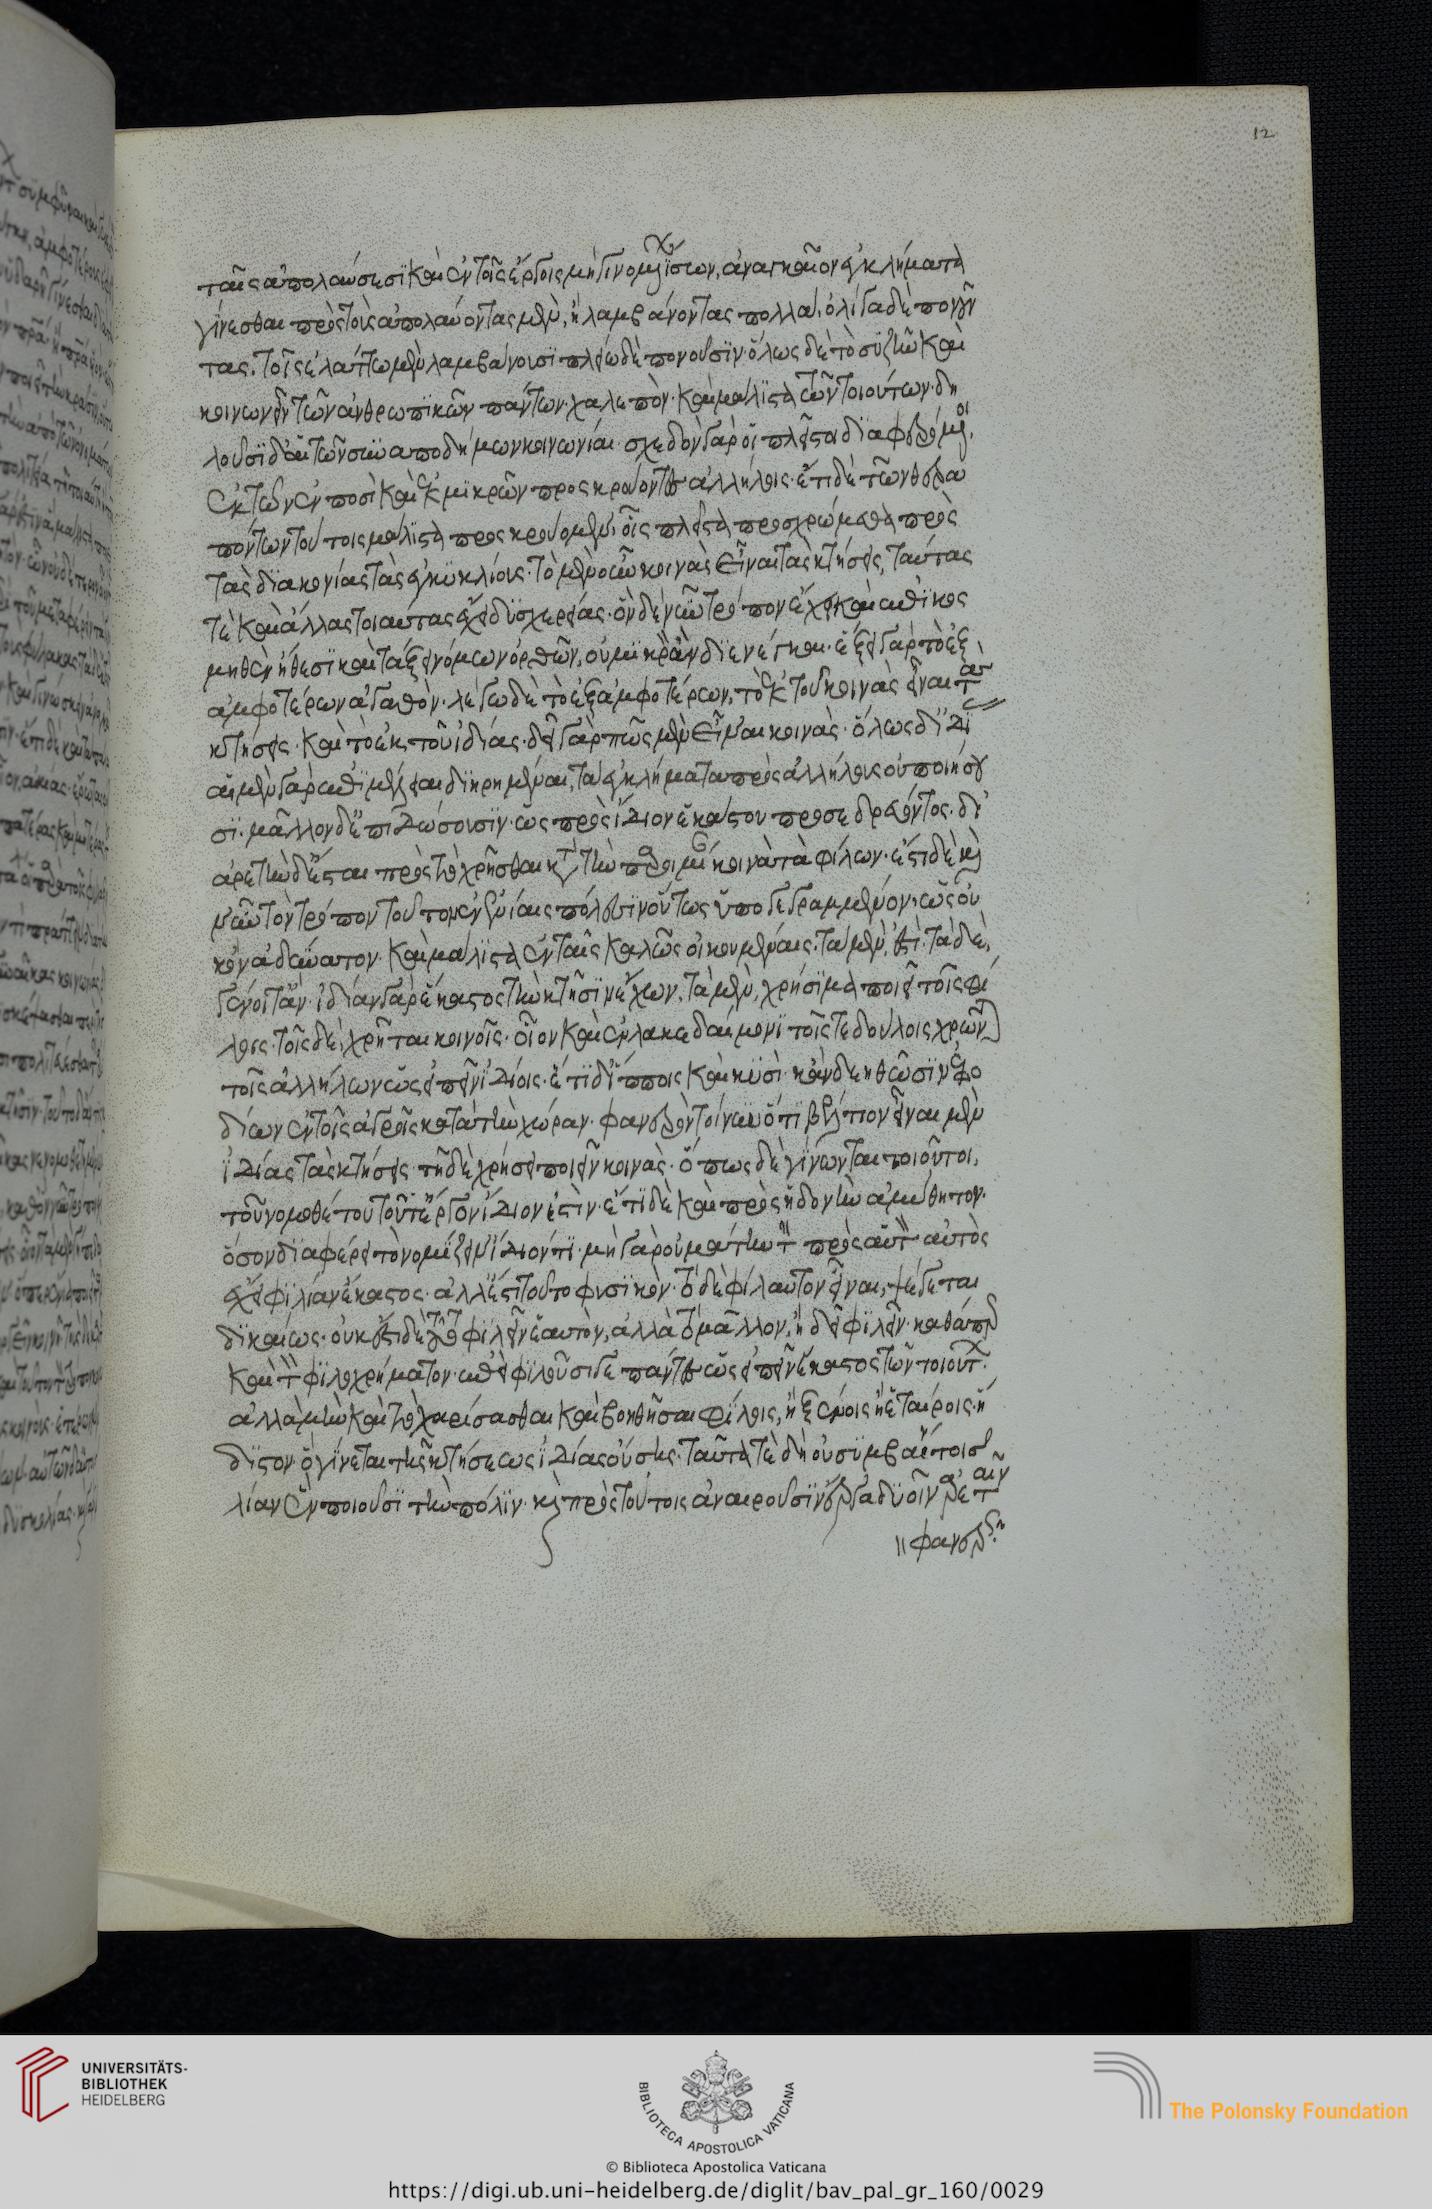 12
ταῖς ἀπολαύσεσι καὶ ἐν τοῖς ἔργοις μὴ γινομένων ἴσων, ἀναγκαῖον ἐγκλήματα
γίνεσθαι πρὸς τοὺς ἀπολαύοντας μὲν, ἢ λαμβάνοντας πολλὰ, ὀλίγα δὲ πονοῦν
τας. τοῖς ἐλάττω μὲν λαμβάνουσι πλείω δὲ πονοῦσιν. ὅλως δὲ τὸ συζῆν καὶ
κοινωνεῖν τῶν ἀνθρωπικῶν πάντων χαλεπὸν. καὶ μάλιστα τῶν τοιούτων. δη
λοῦσι δ' αἱ τῶν συναποδήμων κοινωνίαι. σχεδὸν γὰρ οἱ πλεῖστοι διαφερόμενοι
ἐκ τῶν ἐν ποσὶ καὶ ἐκ μικρῶν προσκρούοντες ἀλλήλοις. ἔτι δὲ τῶν θερα
πόντων τούτοις μάλιστα προσκρούομεν, οἷς πλεῖστα προσχρώμεθα πρὸς
τὰς διακονίας τὰς ἐγκυκλίους. τὸ μὲν οὖν κοινὰς εἶναι τὰς κτήσεις, ταύτας
τε καὶ ἄλλας τοιαύτας ἔχει δυσχερείας. ὃν δὲ νῦν τρόπον ἔχει καὶ
ἤθεσι καὶ τάξει νόμων ὀρθῶν, οὐ μικρὸν ἂν διενέγκαι. ἕξει γὰρ τὸ ἐξ
ἀμφοτέρων ἀγαθὸν. λέγω δὲ τὸ ἐξ ἀμφοτέρων, τὸ ἐκ τοῦ κοινὰς εἶναι τὰς
κτήσεις καὶ τὸ ἐκ τοῦ ἰδίας. δεῖ γὰρ πῶς μὲν εἶναι κοινὰς. ὅλως δ' ἰδί
αἱ μὲν γὰρ ἐπιμέλειαι διῃρημέναι, τὰ ἐγκλήματα πρὸς ἀλλήλους οὐ ποιήσου
σι. μᾶλλον δὲ ἐπιδώσουσιν. ὡς πρὸς ἴδιον ἑκάστου προσεδρεύοντος. δι'
ἀρετὴν δ' ἔσται πρὸς τὸ χρῆσθαι κατὰ τὴν παροιμίαν κοινὰ τὰ φίλων. ἔστι δὲ καὶ
νῦν τὸν τρόπον τοῦτον ἐν ἐνίαις πόλεσιν οὕτως ὑπογεγραμμένον. ὡς οὐ
κ ὂν ἀδύνατον. καὶ μάλιστα ἐν ταῖς καλῶς οἰκουμέναις. τὰ μὲν, ἔστι. τὰ δὲ,
γένοιτ' ἄν. ἰδίαν γὰρ ἕκαστος τὴν κτῆσιν ἔχων, τὰ μὲν, χρήσιμα ποιεῖ τοῖς φί
λοις. τοῖς δὲ, χρῆται κοινοῖς. οἷον καὶ ἐν λακεδαίμονι τοῖς τε δούλοις χρῶνται
τοῖς ἀλλήλων ὡς εἰπεῖν ἰδίοις. ἔτι δ' ἵπποις καὶ κυσὶ. κἂν δεηθῶσιν ἐφο
δίων ἐν τοῖς ἀγροῖς κατὰ τὴν χώραν. φανερὸν τοίνυν ὅτι βέλτιον εἶναι μὲν
ἰδίας τὰς κτήσεις. τῇ δὲ χρήσει ποιεῖν κοινὰς. ὅπως δὲ γίνωνται τοιοῦτοι,
τοῦ νομοθέτου τοῦτ' ἔργον ἴδιον ἐστὶν. ἔτι δὲ καὶ πρὸς ἡδονὴν ἀμύθητον.
ὅσον διαφέρει τὸ νομίζειν ἴδιόν τι. μὴ γὰρ οὐ μάτην τὴν πρὸς αὑτὸν αὐτὸς
ἔχει φιλίαν ἕκαστος. ἀλλ' ἔστι τοῦτο φυσικὸν. τὸ δὲ φίλαυτον εἶναι, ψέγεται
δικαίως. οὐκ ἔστι δὲ τοῦτο τὸ φιλεῖν ἑαυτὸν, ἀλλὰ τὸ μᾶλλον, ἢ δεῖ φιλεῖν. καθάπερ
καὶ τὸν φιλοχρήματον. ἐπεὶ φιλοῦσί γε πάντες ὡς εἰπεῖν ἕκαστος τῶν τοιούτων.
ἀλλὰ μὴν καὶ τὸ χαρίσασθαι καὶ βοηθῆσαι φίλοις, ἢ ξένοις ἢ ἑταίροις. ἥ
διστον. ὃ γίνεται τῆς κτήσεως ἰδίας οὔσης. ταῦτά τε δὴ οὐ συμβαίνει τοῖς
λίαν ἓν ποιοῦσι τὴν πόλιν. καὶ πρὸς τούτοις ἀναιροῦσιν ἔργα δυοῖν ἀρεταῖν
φανερῶς
UNIVERSITÄTS-
BIBLIOTHEK
HEIDELBERG
BIBLIOTECA APOSTOLICA VATICANA
The Polonsky Foundation
© Biblioteca Apostolica Vaticana
https://digi.ub.uni-heidelberg.de/diglit/bav_pal_gr_160/0029